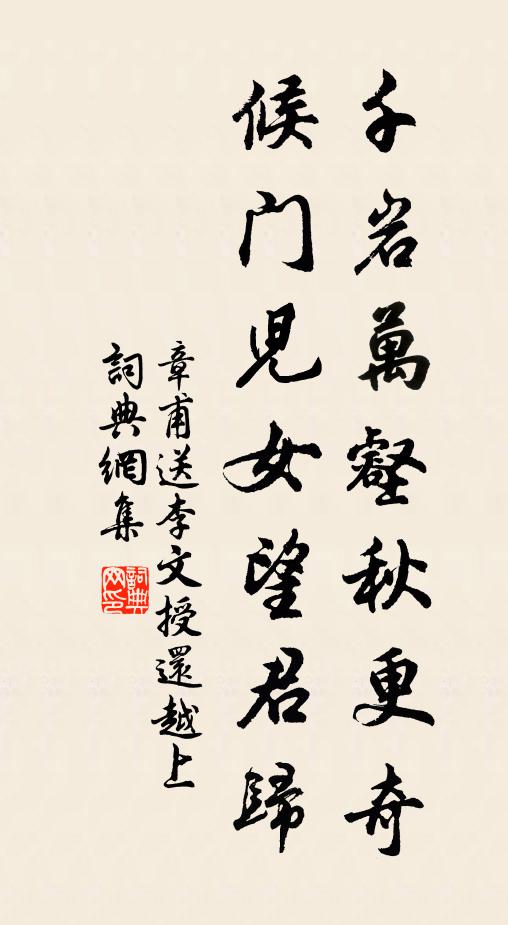 千岩萬壑秋更奇
候门児女望君歸
章甫送李文授還越上
詞典網集
詞典網印